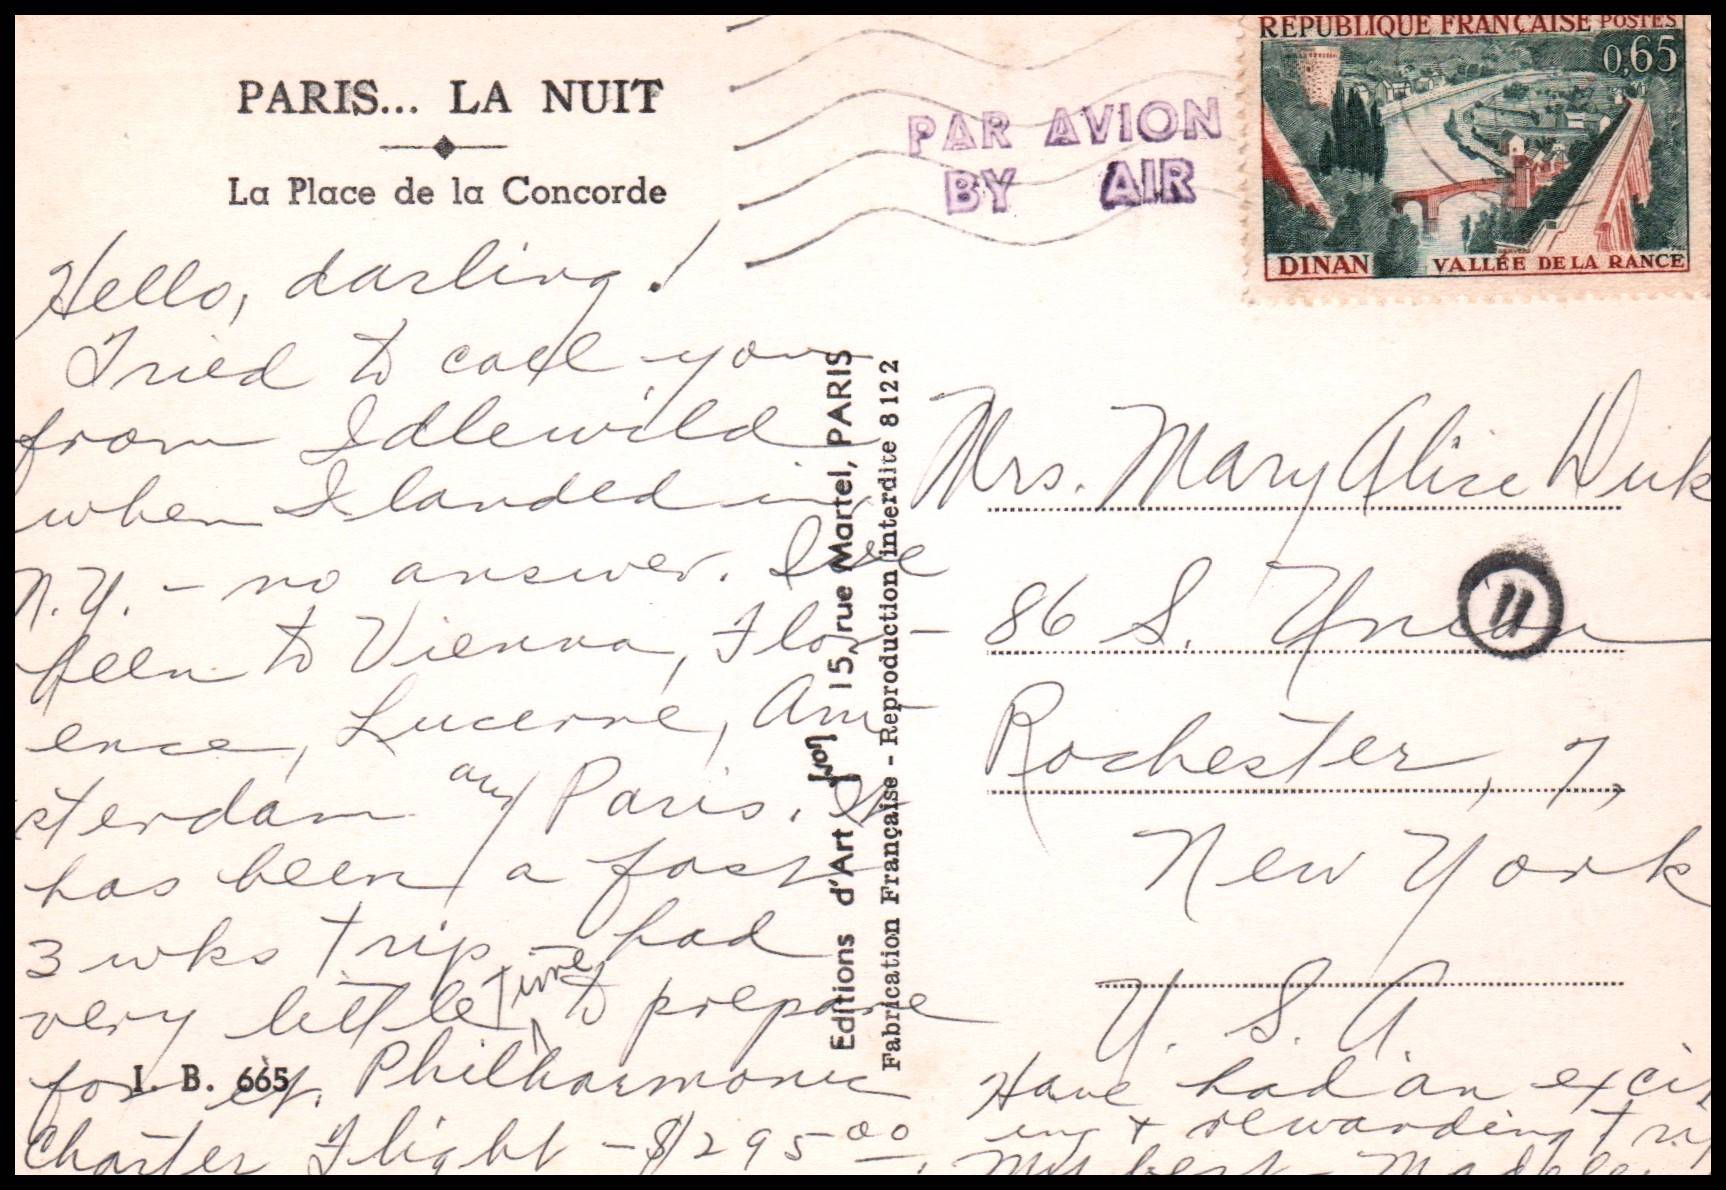 PARIS... LA NUIT
La Place de la Concorde
PAR AVION
BY AIR
REPUBLIQUE FRANÇAISE POSTES
0,65
DINAN VALLÉE DE LA RANCE
Hello, darling!
Tried to call you
from Idlewild
when I landed in
N.Y. - no answer. I've
been to Vienna, Flor-
ence, Lucerne, Am-
sterdam and Paris. It
has been a fast
3 wks trip - had
very little time to prepare
for it. Philharmonic
Charter Flight - $295.00.
I. B. 665
Editions d'Art Yvon 15, rue Martel, PARIS
Fabrication Française - Reproduction interdite 8122
Mrs. Mary Alice
86 S. Union
11
Rochester, 7,
New York
U. S. A.
Have had an excit
ing & rewarding trip
My best -